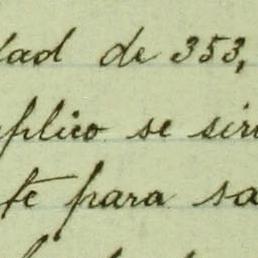 dad de 353,
plico se sir
te para sa